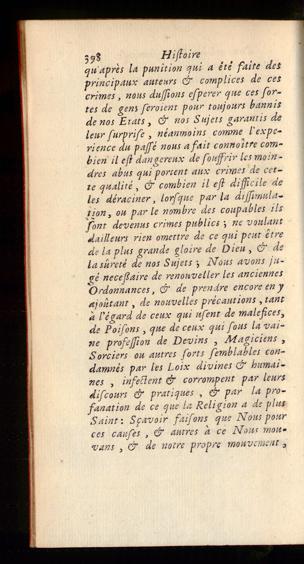 398 Histoire
qu'après la punition qui a été faite des
principaux auteurs & complices de ces
crimes, nous dussions esperer que ces sor-
tes de gens seroient pour toujours bannis
de nos Etats, & nos Sujets garantis de
leur surprise, néanmoins comme l'expe-
rience du passé nous a fait connoître com-
bien il est dangereux de souffrir les moin-
dres abus qui portent aux crimes de cet-
te qualité, & combien il est difficile de
les déraciner, lorsque par la dissimula-
tion, ou par le nombre des coupables ils
sont devenus crimes publics; ne voulant
d'ailleurs rien omettre de ce qui peut être
de la plus grande gloire de Dieu, & de
la sûreté de nos Sujets; Nous avons ju-
gé necessaire de renouveller les anciennes
Ordonnances, & de prendre encore en y
ajoûtant, de nouvelles précautions, tant
à l'égard de ceux qui usent de malefices,
de Poisons, que de ceux qui sous la vai-
ne profession de Devins, Magiciens,
Sorciers ou autres sorts semblables con-
damnés par les Loix divines & humai-
nes, infectent & corrompent par leurs
discours & pratiques, & par la pro-
fanation de ce que la Religion a de plus
Saint: Sçavoir faisons que Nous pour
ces causes, & autres à ce Nous mou-
vans, & de notre propre mouvement,